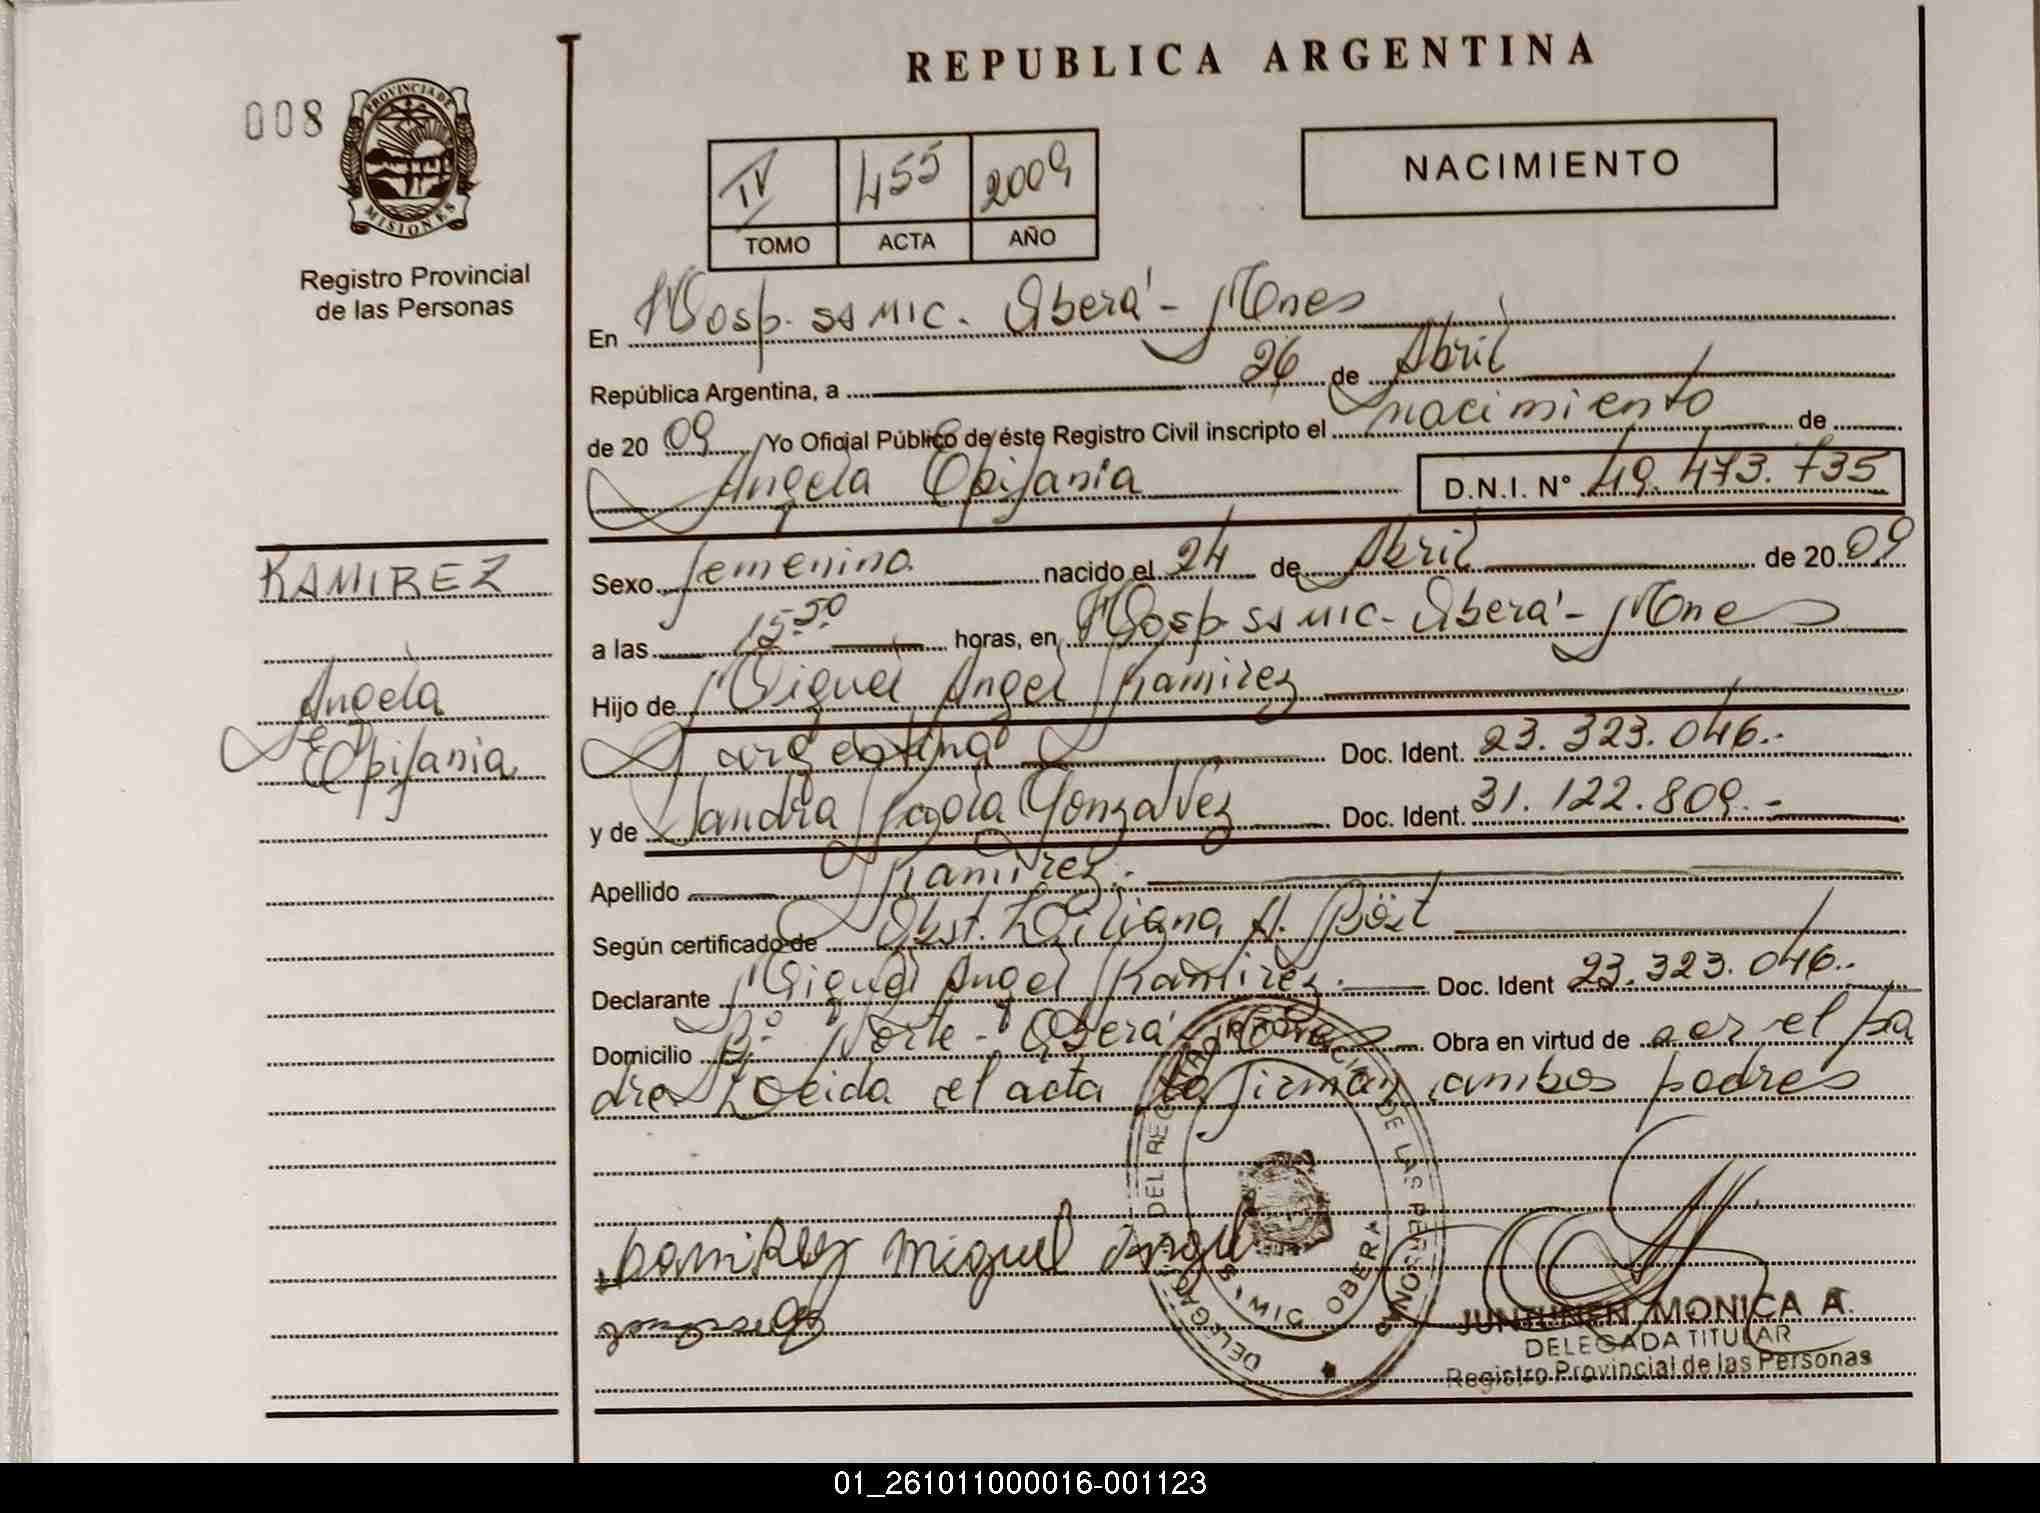 REPUBLICA ARGENTINA
008
PROVINCIA DE
MISIONES
Registro Provincial
de las Personas
NACIMIENTO
IV 455 2009
TOMO ACTA AÑO
En Hosp. SS MIC. Oberá - Mnes
República Argentina, a 26 de Abril
de 2009 Yo Oficial Público de éste Registro Civil inscripto el nacimiento de
Angela Epifania D.N.I. N° 49.473.735
RAMIREZ
Angela
Epifania
Sexo femenino nacido el 24 de Abril de 2009
a las 15-50 horas, en Hosp. SS MIC - Oberá - Mnes
Hijo de Miguel Angel Ramirez
argentino Doc. Ident. 23.323.046.-
y de Sandra Paola Gonzalvez Doc. Ident. 31.122.809.-
Apellido Ramirez.-
Según certificado de Obst. Liliana A. Böit
Declarante Miguel Angel Ramirez.- Doc. Ident 23.323.046..
Domicilio B° Norte - Oberá - Mnes Obra en virtud de ser el pa
dre. Leida el acta la firman ambos padres
Ramirez Miguel Angel
DELEGACION DEL REGISTRO PROVINCIAL DE LAS PERSONAS
OBERA
JUNTUNEN MONICA A.
DELEGADA TITULAR
Registro Provincial de las Personas
01_261011000016-001123